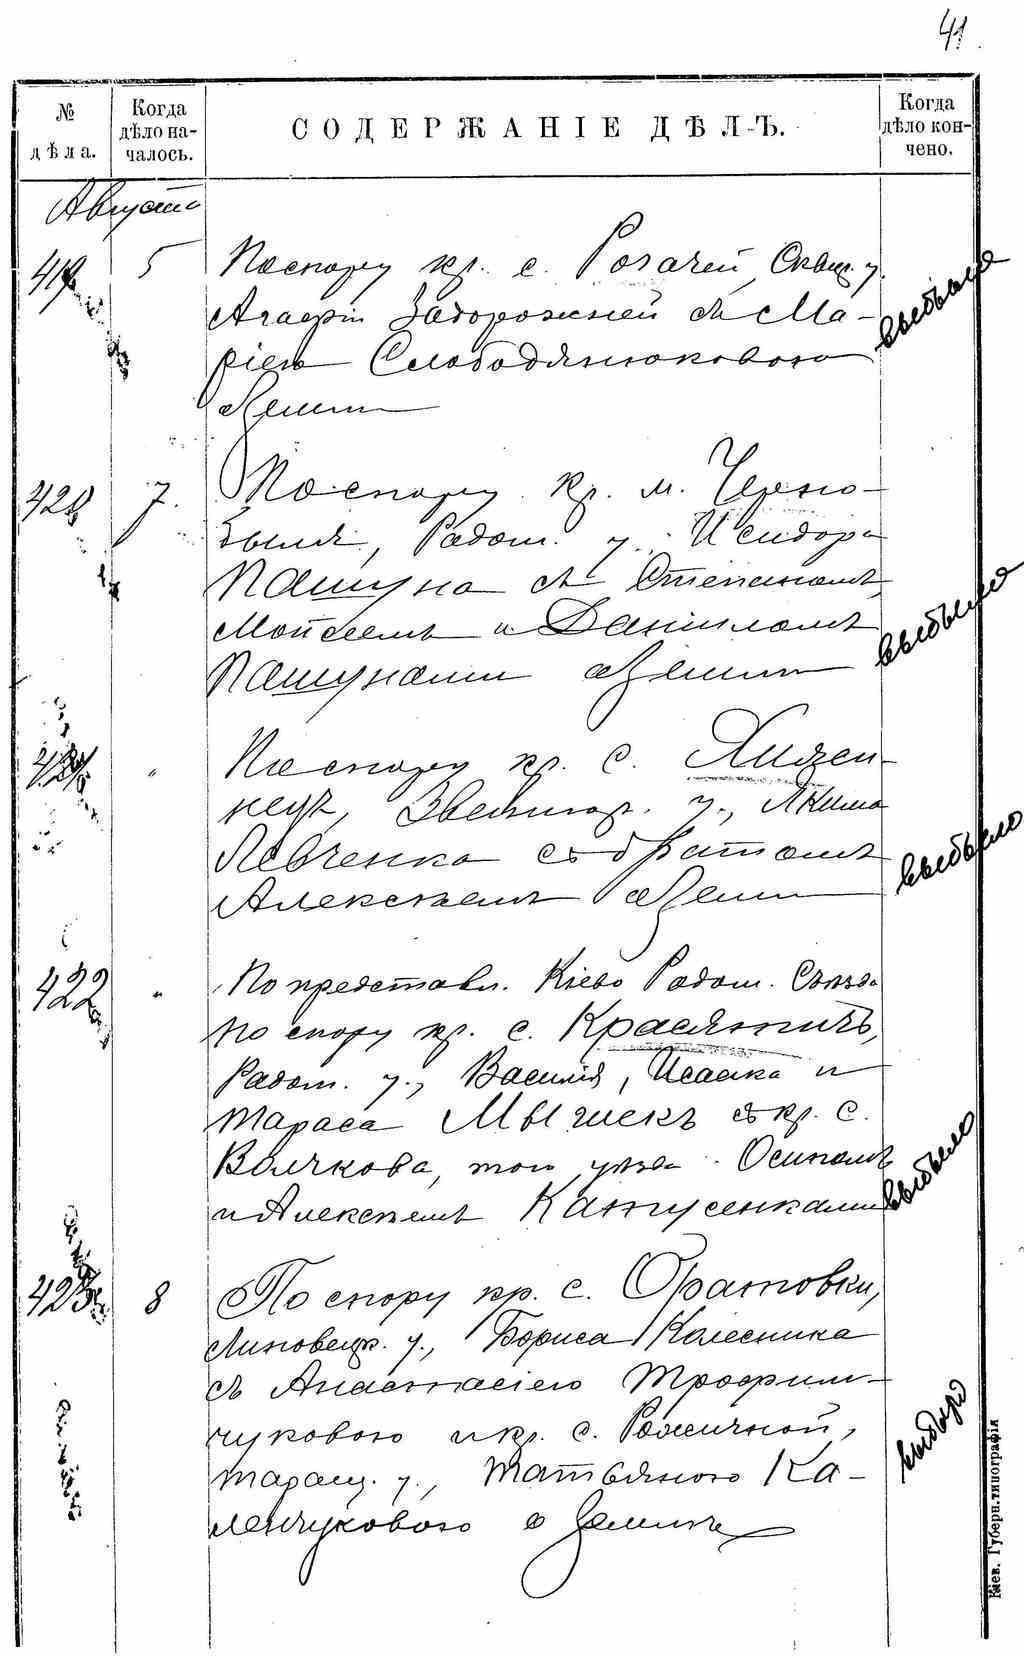 41.
№ дѣла.
Когда дѣло началось.
СОДЕРЖАНІЕ ДѢЛЪ.
Когда дѣло кончено.
Августа
419 5 По спору кр. с. Рогачей, Сквир. у.
Агафіи Задорожней съ Ма-
ріею Слободянюковою
о земли
выбыло
420 7. По спору кр. м. Черно-
быля, Радом. у. Исидора
Пашуна съ Степаномъ,
Мойсеемъ и Даніиломъ
Пашунами о земли
выбыло
421 " По спору кр. с.
Звенигор. у., Якима
Левченка съ братомъ
Алексѣемъ о земли
выбыло
422 " По представл. Кіево Радом. Съѣзда
по спору кр. с. Красятичъ,
Радом. у., Василія, Исаака и
Тараса съ кр. с.
Волчкова, того уѣзда Осипомъ
и Алексѣемъ
выбыло
423 8 По спору кр. с. Оратовки,
Липовецк. у., Бориса Колесника
съ Анастасіею Трофим-
чуковою и кр. с. Розкичной,
Таращ. у., Татьяною Ка-
ленчуковою о земли
выбыло
Кіев. Губерн. типографія